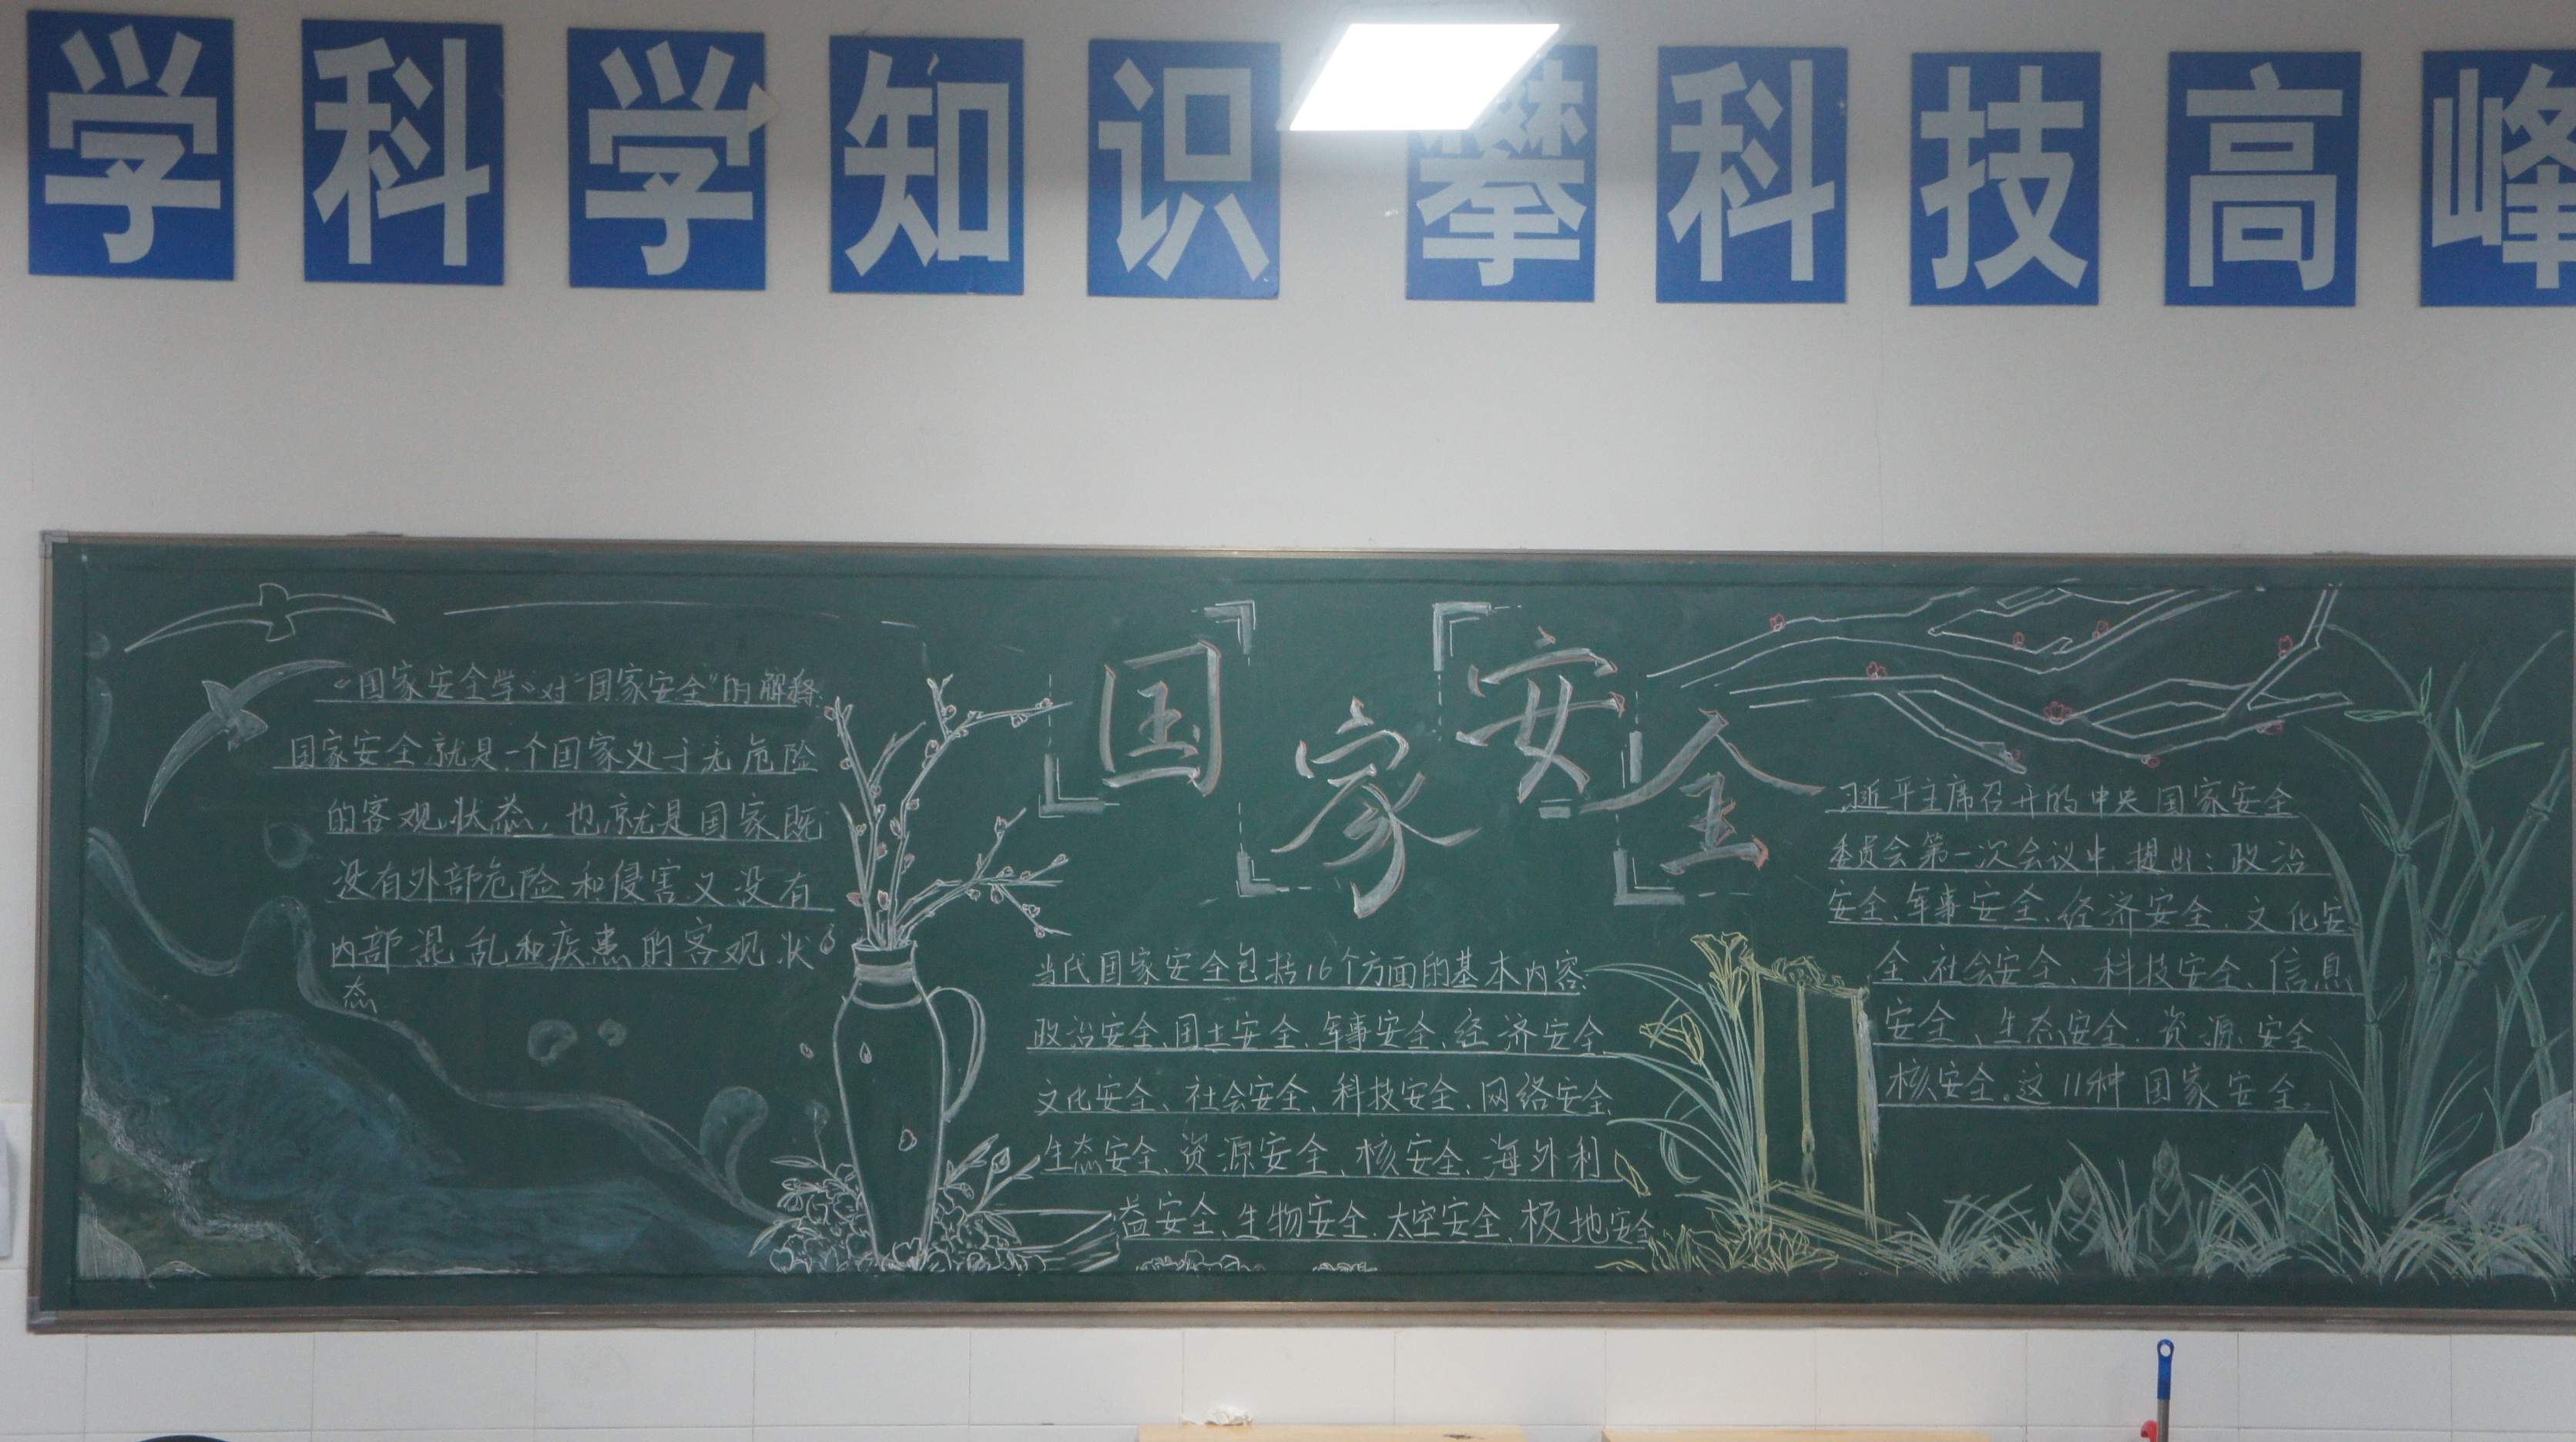 学科学知识 攀科技高峰
《国家安全学》对“国家安全”的解释:
国家安全就是一个国家处于无危险
的客观状态，也就是国家既
没有外部危险和侵害又没有
内部混乱和疾患的客观状
态
国家安全
当代国家安全包括16个方面的基本内容:
政治安全、国土安全、军事安全、经济安全
文化安全、社会安全、科技安全、网络安全
生态安全、资源安全、核安全、海外利
益安全、生物安全、太空安全、极地安全
习近平主席召开的中央国家安全
委员会第一次会议中,提出:政治
安全、军事安全、经济安全、文化安
全、社会安全、科技安全、信息
安全、生态安全、资源安全
核安全。这11种国家安全。